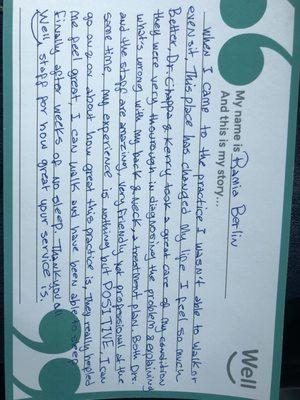 My name is Rania Berlin
And this is my story...
When I came to the practice I wasn't able to walk or
even sit. This place has changed my life I feel so much
Better. Dr. Chappa & Kerry took a great care of my condition
they were very thourough in diagnosing the problem & explaining
what's wrong with my back & neck, & treatment plan. Both Drs.
and the staff are amazing very friendly yet professional at the
same time. my experience is nothing but POSITIVE I can
go on & on about how great this practice is, They really hepled
me feel great I can walk and have been able to sleep
Finally after weeks of no sleep. Thank you all
Well staff for how great your service is.
Well